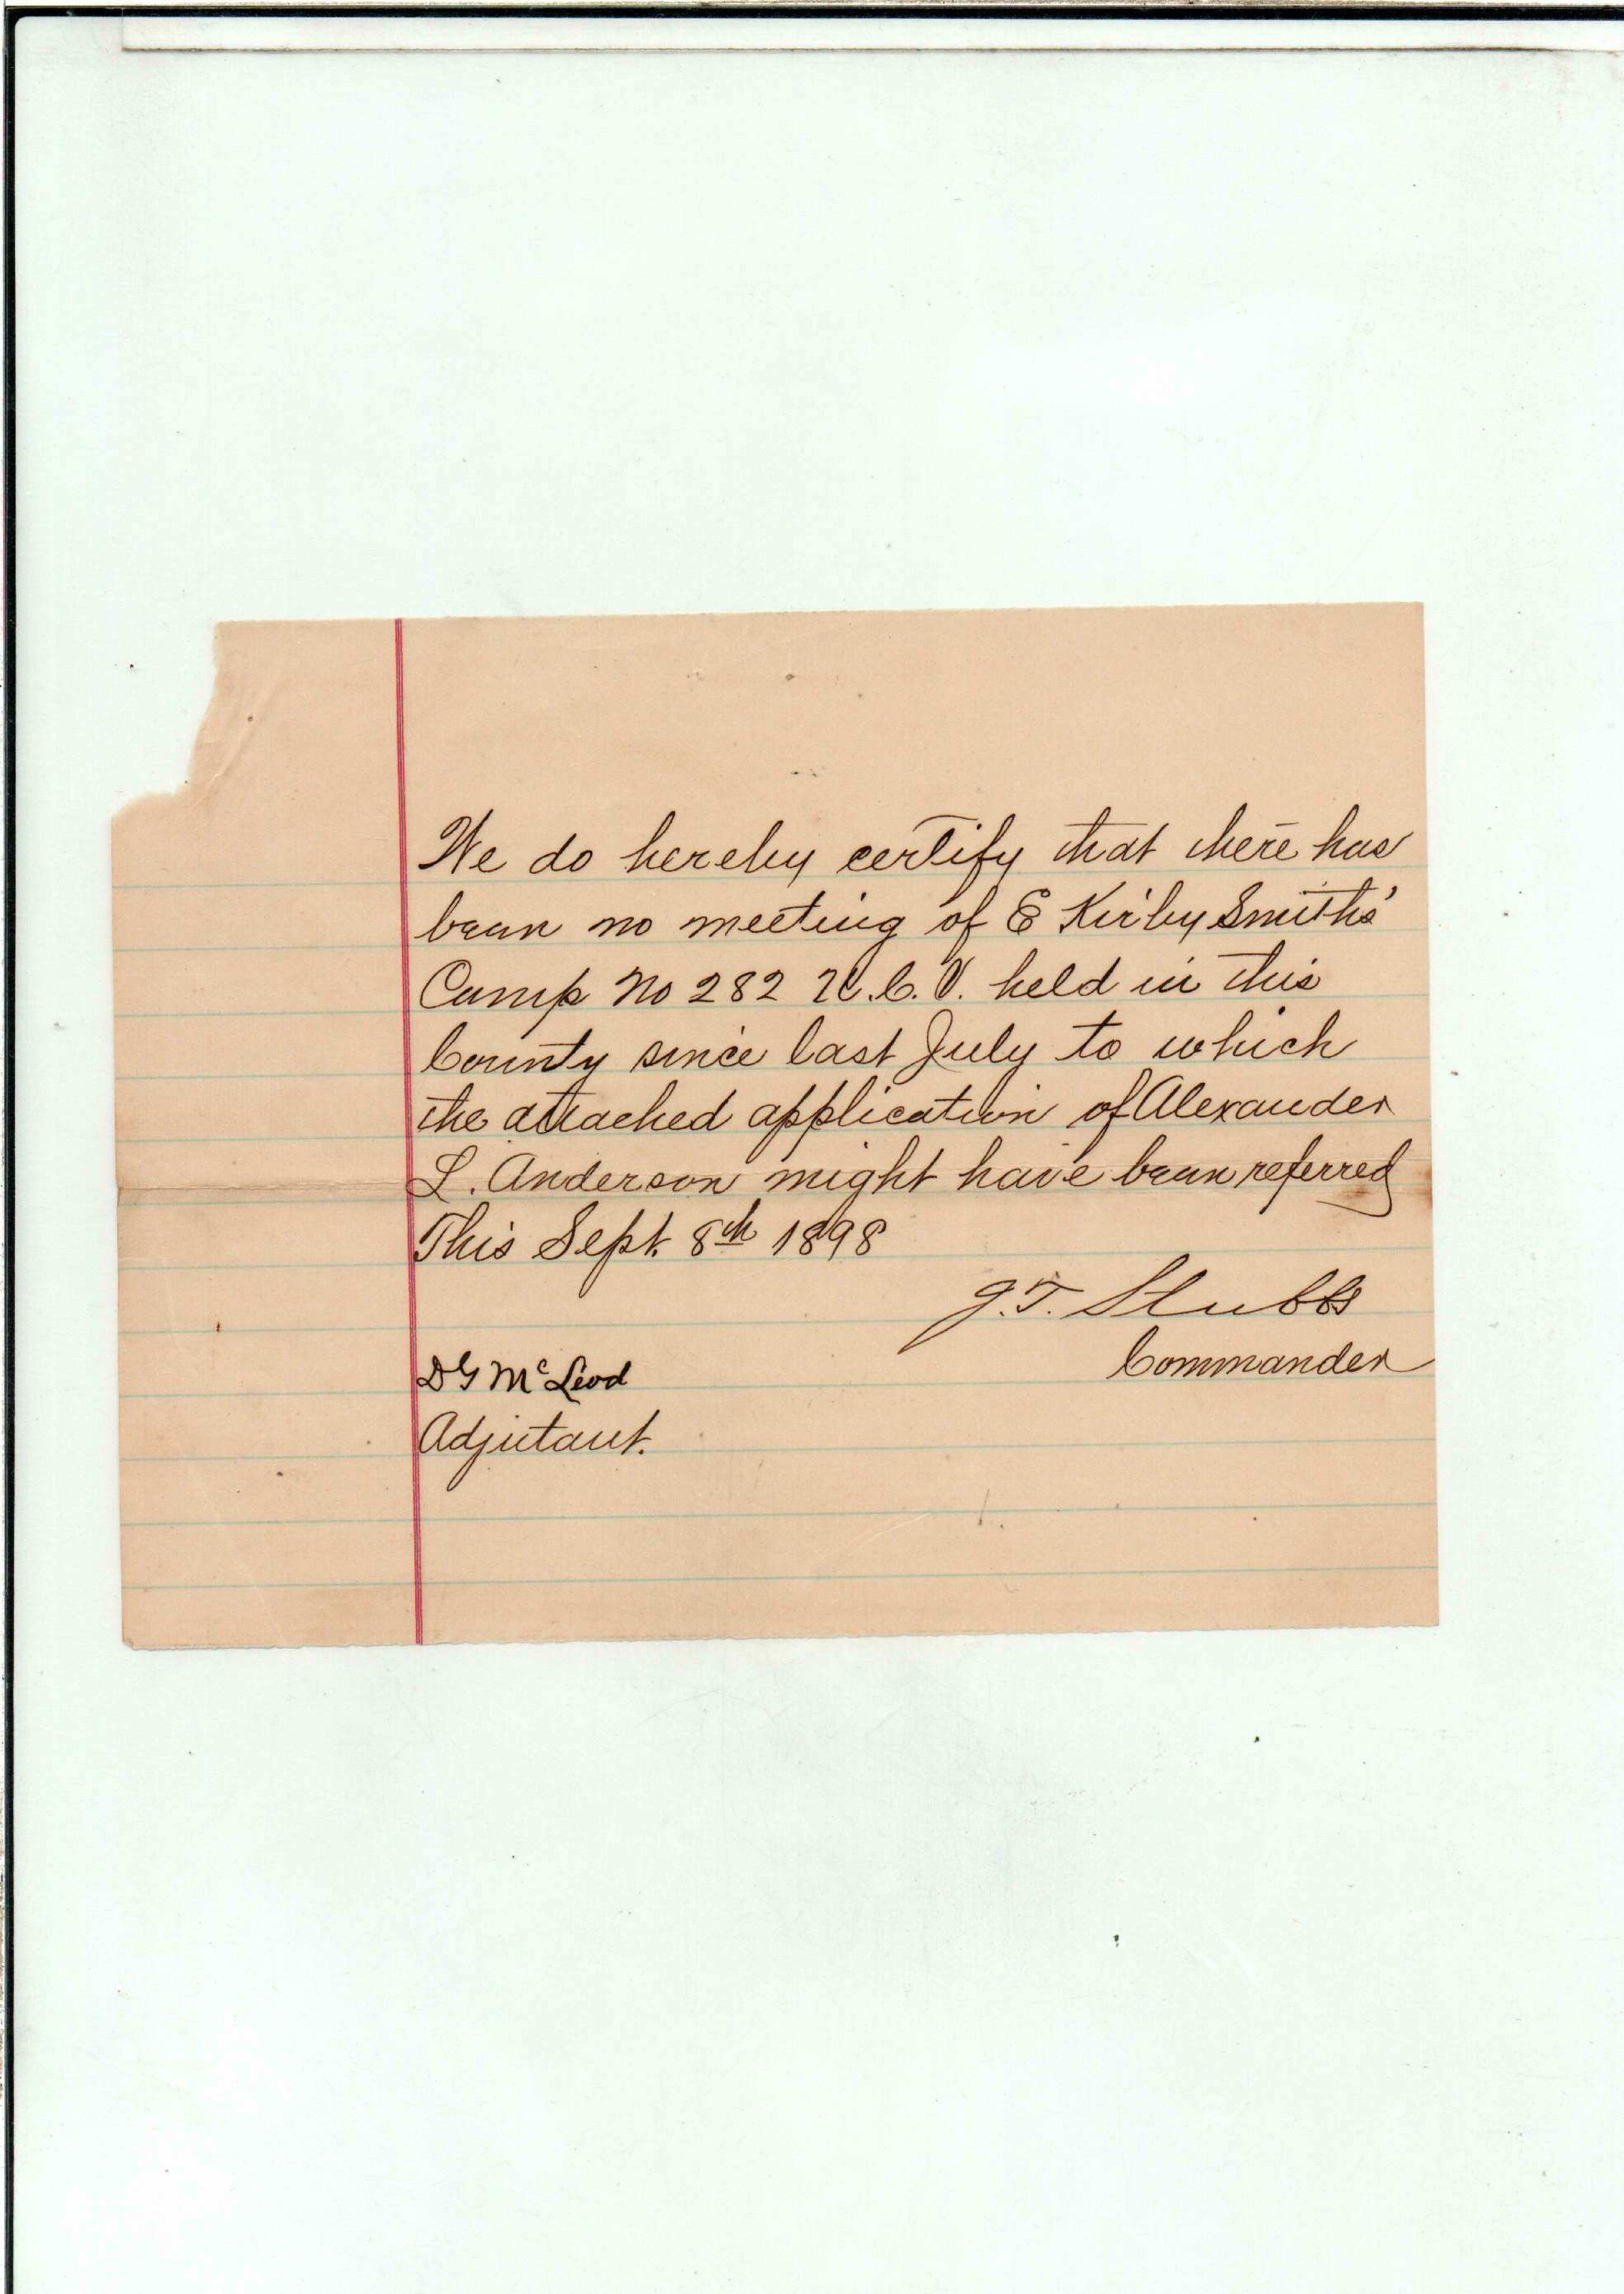 We do hereby certify that there has
been no meeting of E Kirby Smiths'
Camp No 282 U.C.V. held in this
County since last July to which
the attached application of Alexander
L. Anderson might have been referred
This Sept. 8th 1898
J.T. Stubbs
Commander
D G McLeod
Adjutant.